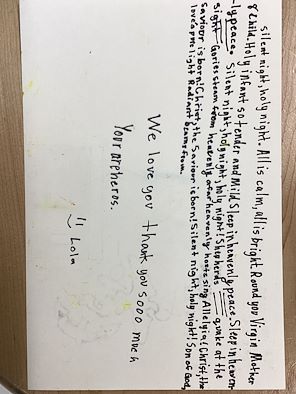 silent night, holy night. All is calm, all is bright Round you Virgin Mother
& Child. Holy infant so tender and Mild Sleep in heavenly peace. Sleep in heaven-
ly peace. Silent night, holy night, holy night! Shepherds quake at the
sight. Gories steam from heavenly afar heavenly hosts sing Allelyia! Christ, the
Saviour is born! Christ, the Saviour is born! Silent night, holy night! Son of God,
love's pure light Radiant beams from.
We love you thank you sooo much
Your orpheros.
Lola